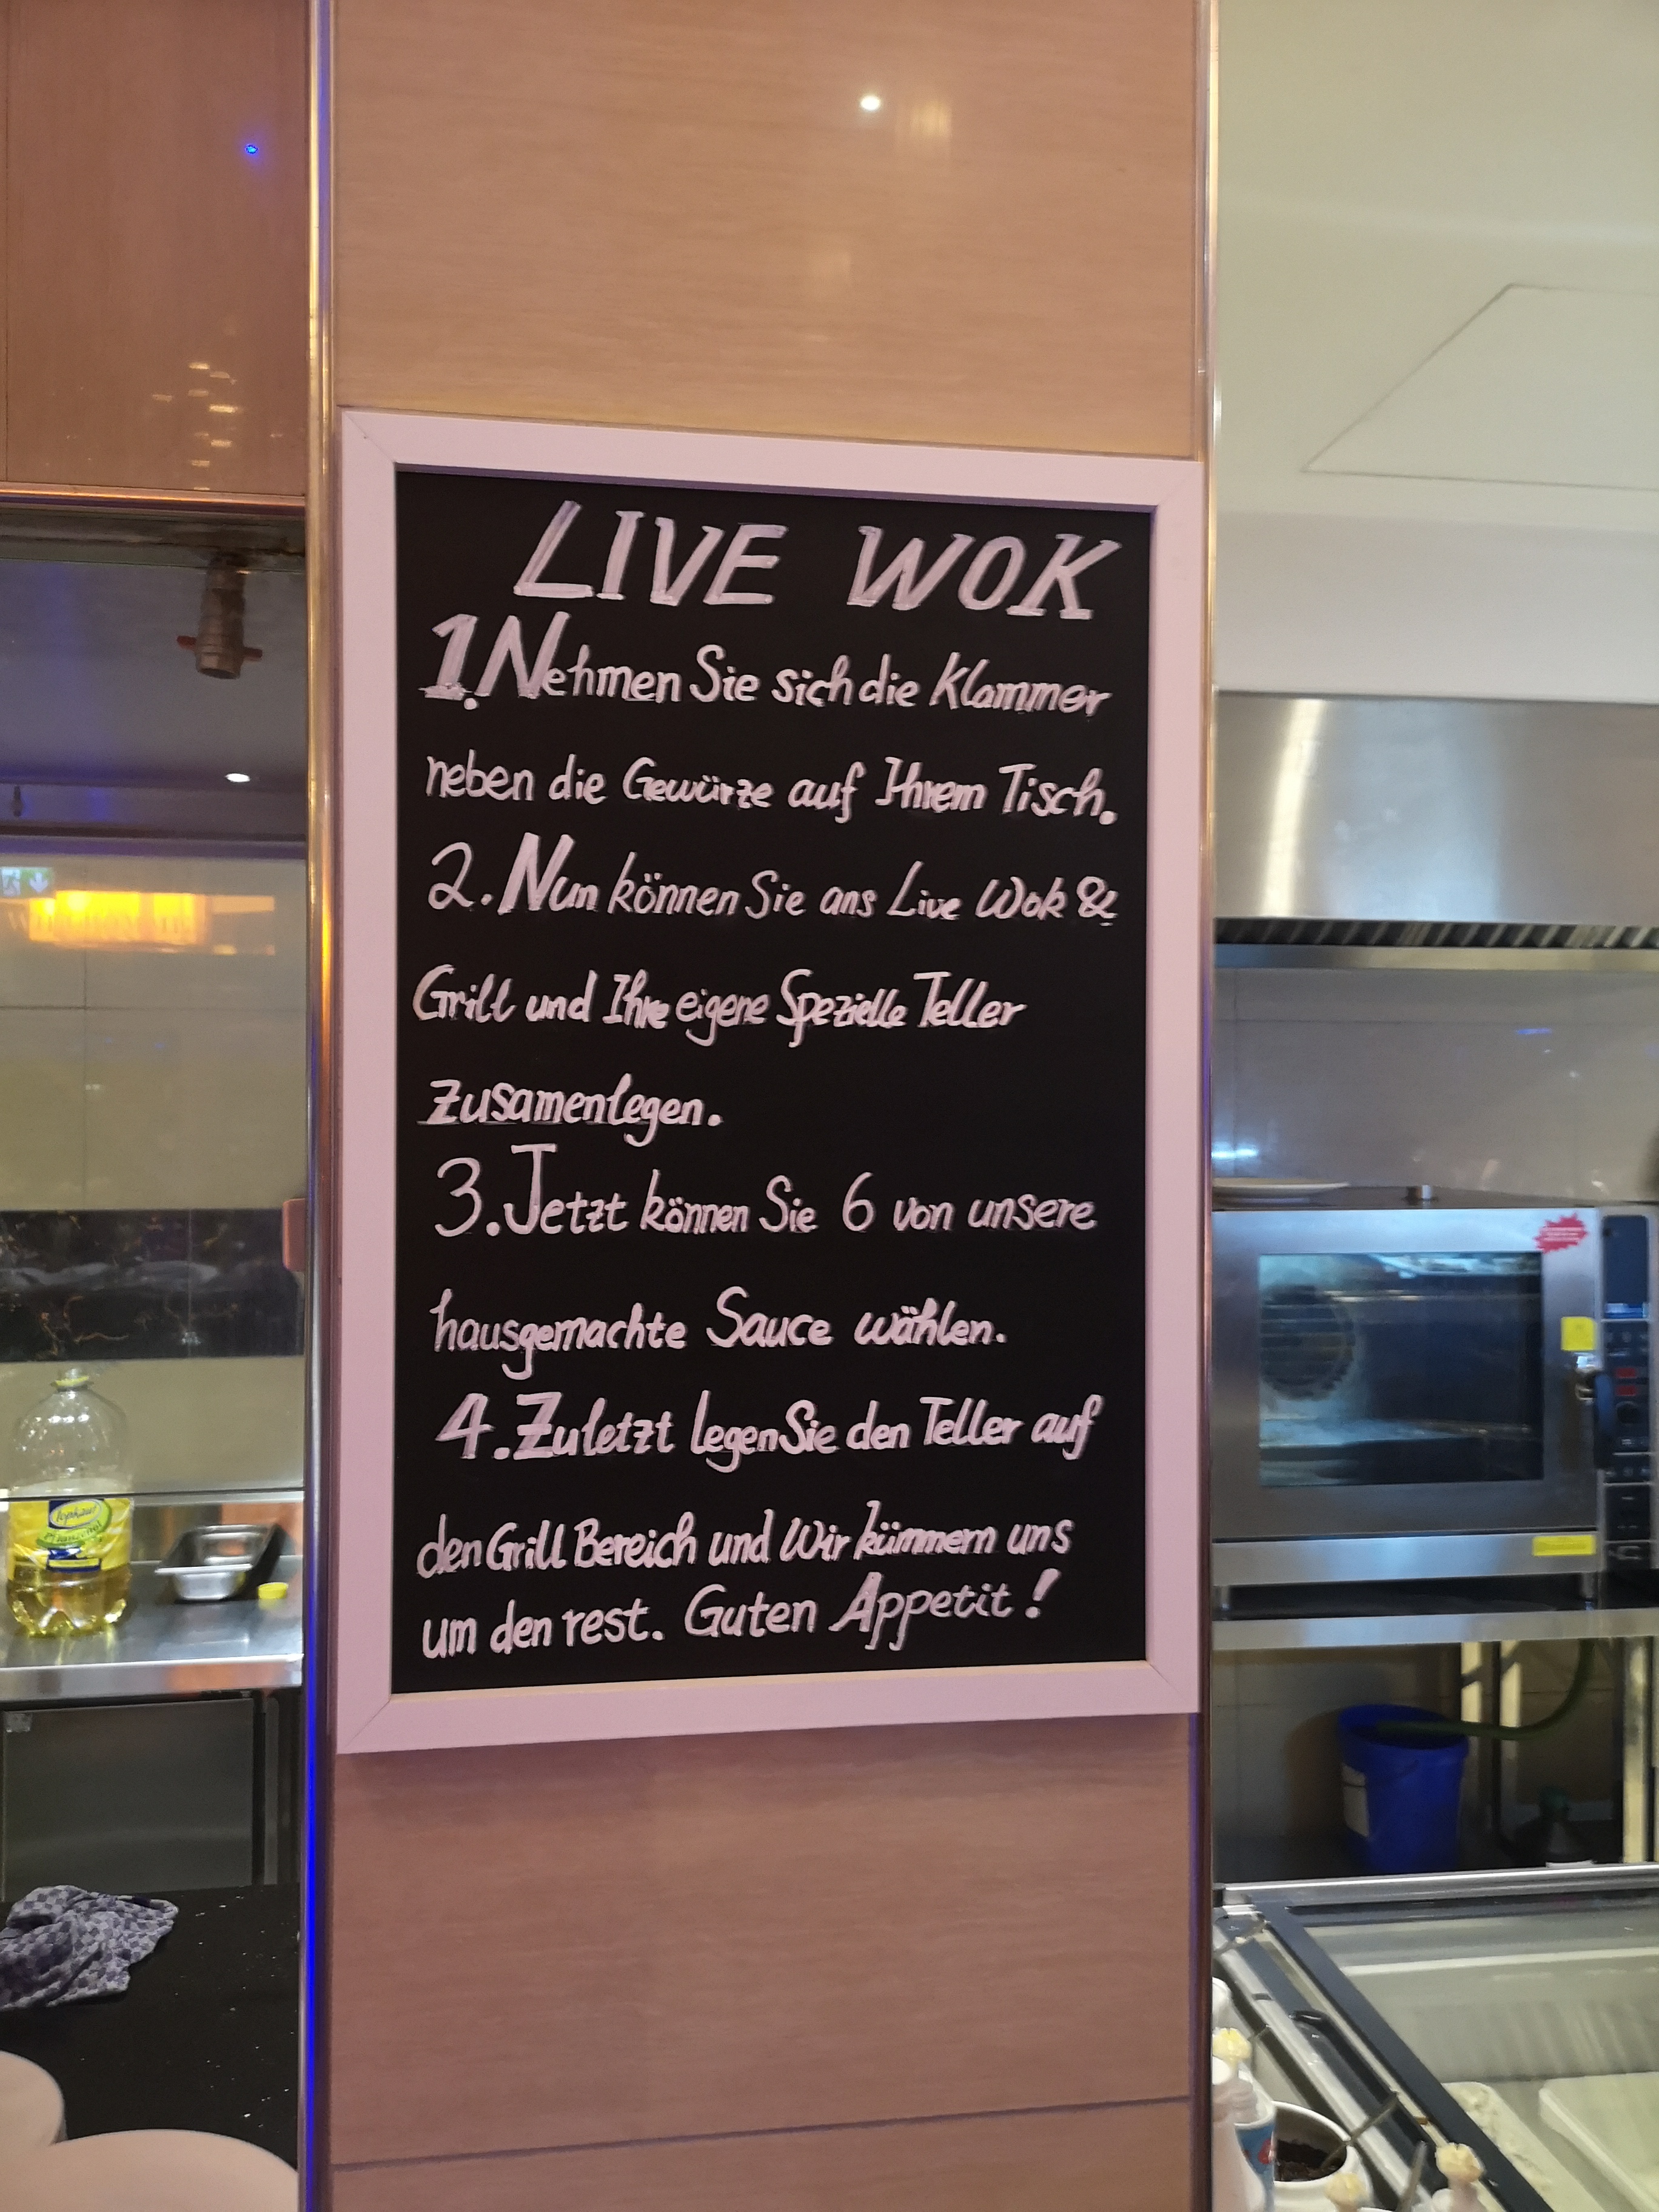 LIVE WOK
1. Nehmen Sie sich die Klammer
neben die Gewürze auf Ihrem Tisch.
2. Nun können Sie ans Live Wok &
Grill und Ihre eigene Spezielle Teller
zusamenlegen.
3. Jetzt können Sie 6 von unsere
hausgemachte Sauce wählen.
4. Zuletzt legen Sie den Teller auf
den Grill Bereich und Wir kümmern uns
um den rest. Guten Appetit!
Pflanzenöl